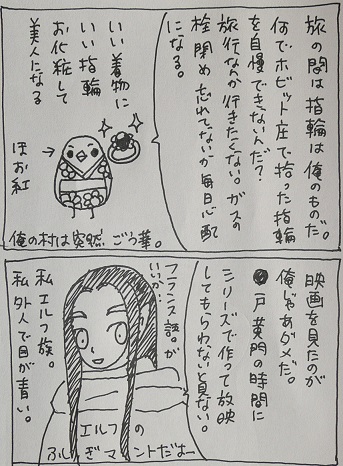 旅の間は指輪は俺のものだ。
何でホビット庄で拾った指輪
を自慢できないんだ？
旅行なんか行きたくない。ガスの
栓閉め忘れてないか毎日心配
になる。
いい着物に
いい指輪
お化粧して
美人になる
ほお紅
俺の村は突然ごう華。
映画を見たのが
俺じゃあダメだ。
●戸黄門の時間に
シリーズで作って放映
してもらわないと見ない。
フランス語。が
いいか？
私エルフ族。
私外人で目が青い。
エルフの
ふしぎマントだよー